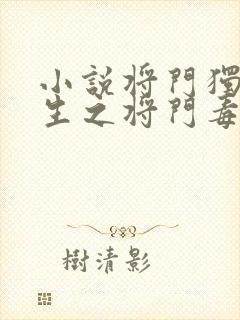 小說將門獨
生之將門毒
樹清影